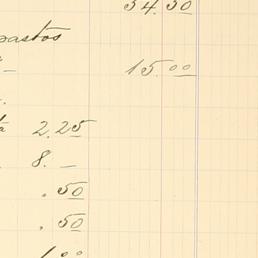 34.50
pastos
" — 15.00
.
tá 2.25
. 8. —
. 50
. 50
1.00